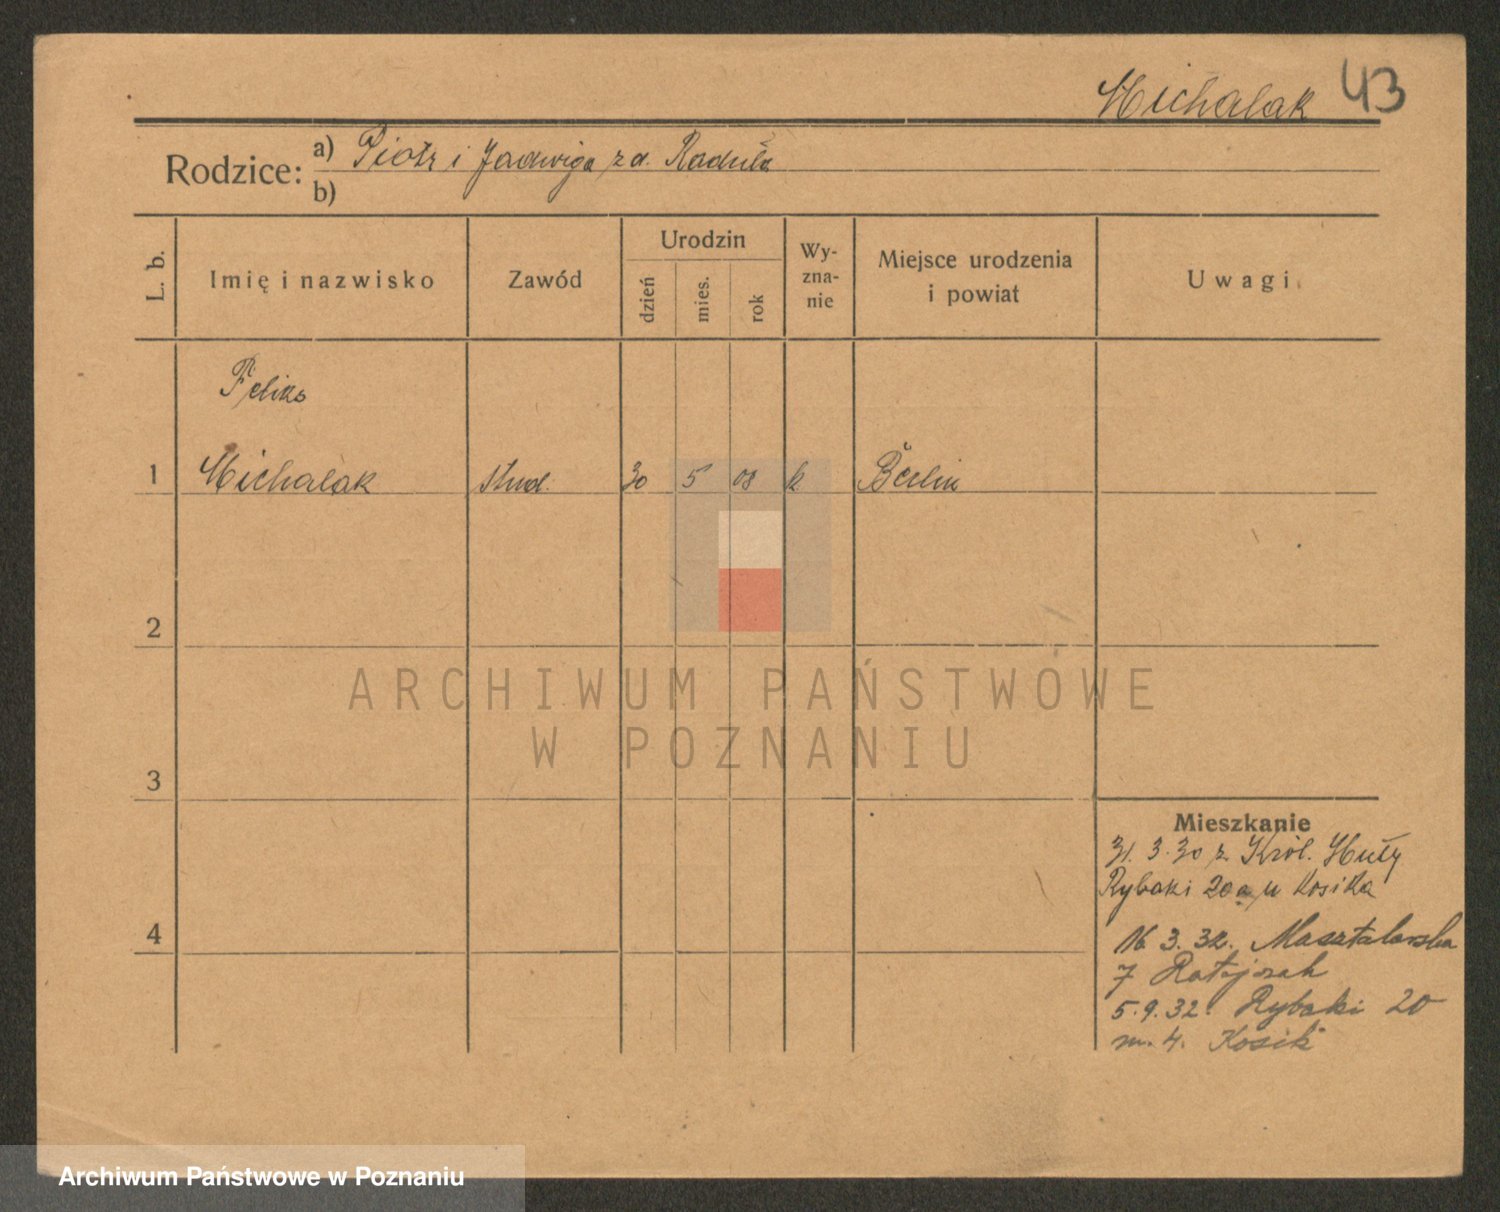 Michalak 43
Rodzice: a) Piotr i Jadwiga z d. Raduła
b)
L. b. Imię i nazwisko Zawód Urodzin dzień mies. rok Wyznanie Miejsce urodzenia i powiat Uwagi
Feliks
1 Michalak stud. 30 5 08 k Berlin
2
ARCHIWUM PAŃSTWOWE
W POZNANIU
3
Mieszkanie
31. 3. 30 z Król. Huty
Rybaki 20a u Kosika
4
16. 3. 32. Masztalarska
7 Ratajczak
5. 9. 32. Rybaki 20
m. 4. Kosik
Archiwum Państwowe w Poznaniu